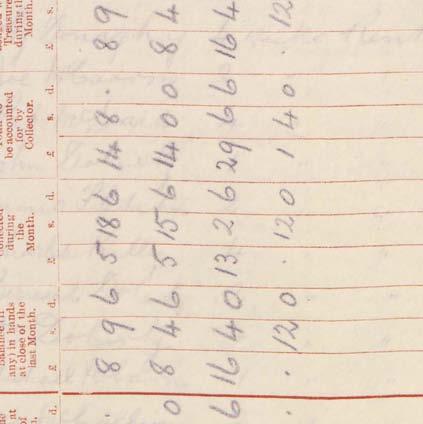 any) in hands
at close of the
last Month.
during
the
Month.
be accounted
for by
Collector.
Treasure
during th
Month.
d. £ s. d. £ s. d. £ s. d. £ s.
. 8 9 6 5 18 6 14 8 . 8 9
0 8 4 6 5 15 6 14 0 0 8 4
6 16 4 0 13 2 6 29 6 6 16 4
. . 12 0 . 12 0 1 4 0 . 12